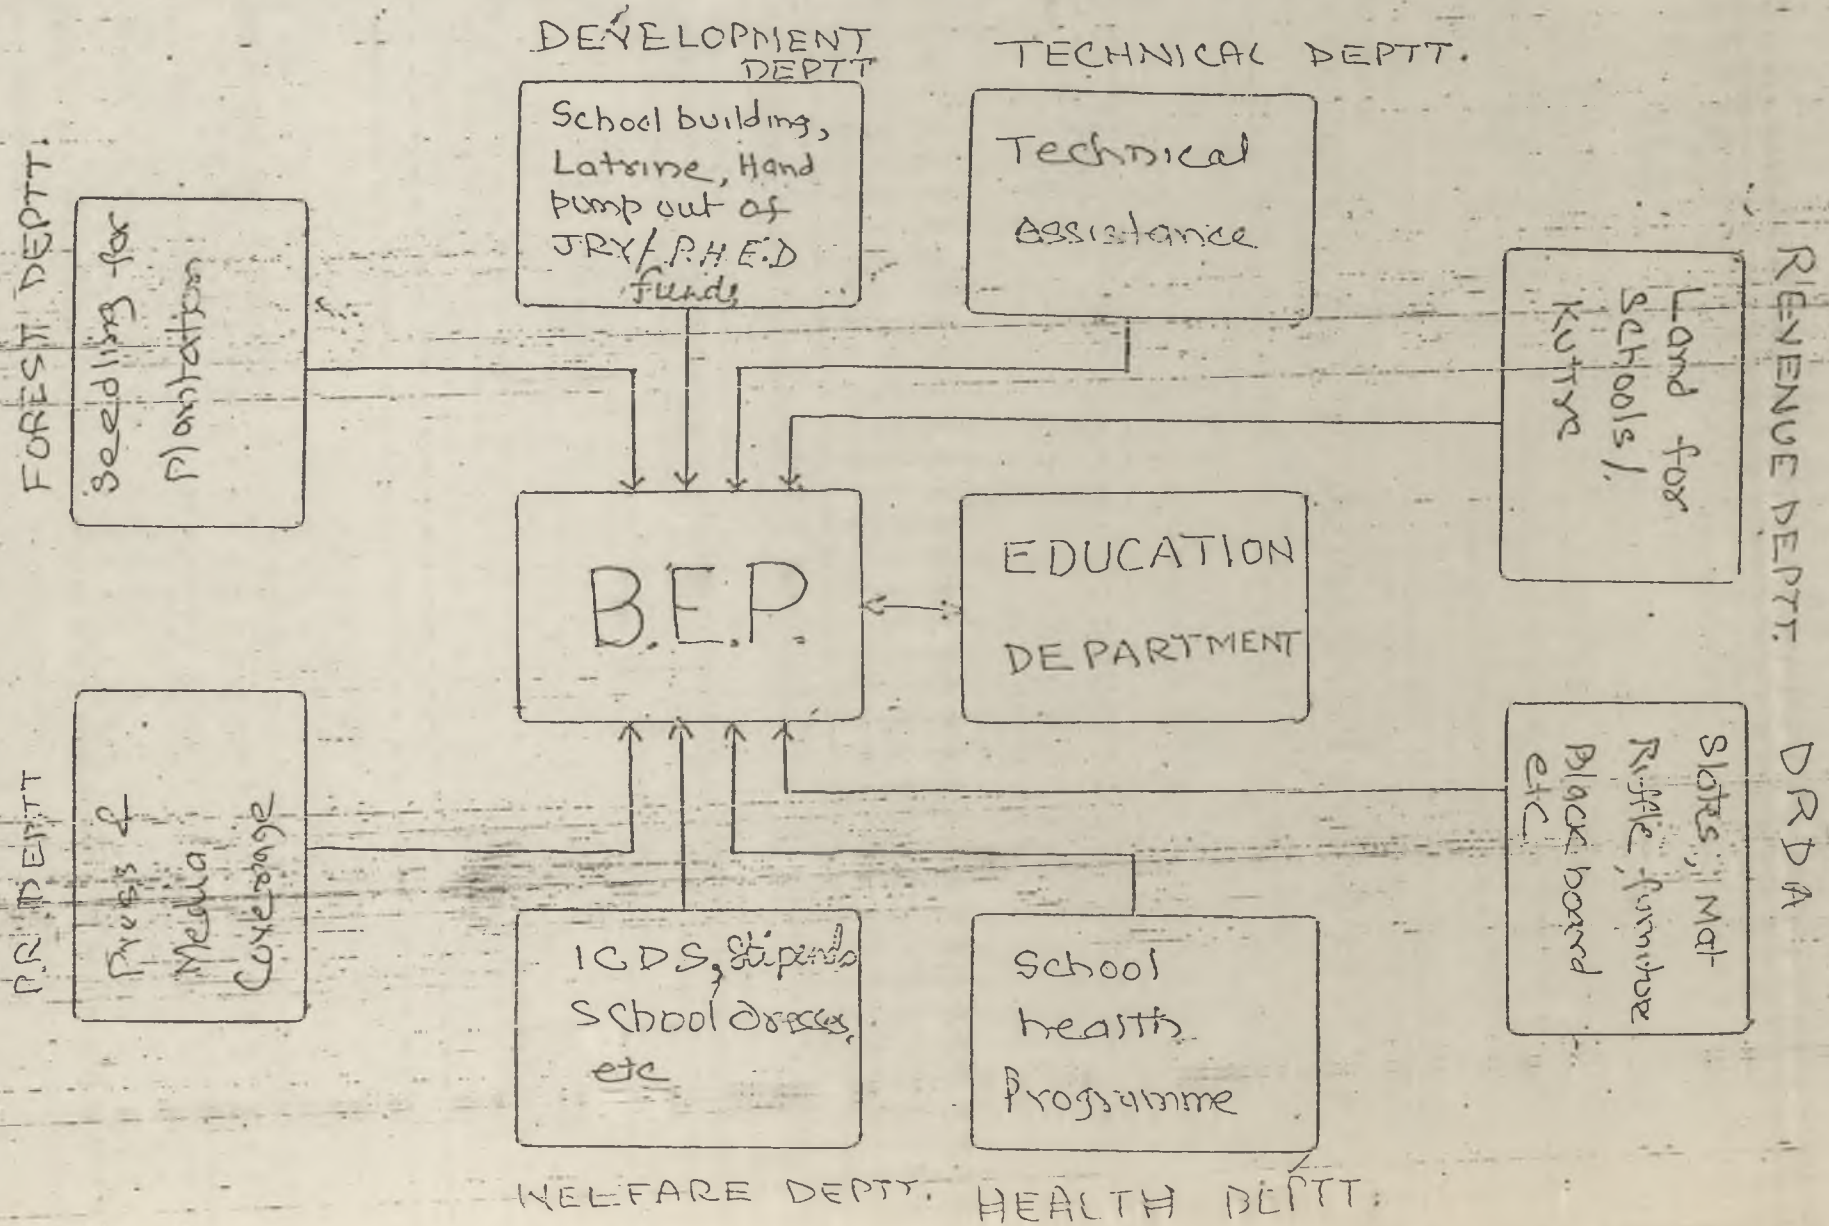 DEVELOPMENT
DEPTT
School building,
Latrine, Hand
pump out of
JRY/P.H.E.D
funds
TECHNICAL DEPTT.
Technical
assistance
FOREST DEPTT.
Seedling for
Plantation
REVENUE DEPTT.
Land for
Schools/
Kutre
B.E.P.
EDUCATION
DEPARTMENT
P.R DEPTT
Press &
Media
Coverage
DRDA
Slates, Mat
furniture
Black board
etc
ICDS, Stipends
School dresses,
etc
WELFARE DEPTT.
School
health
Programme
HEALTH DEPTT.